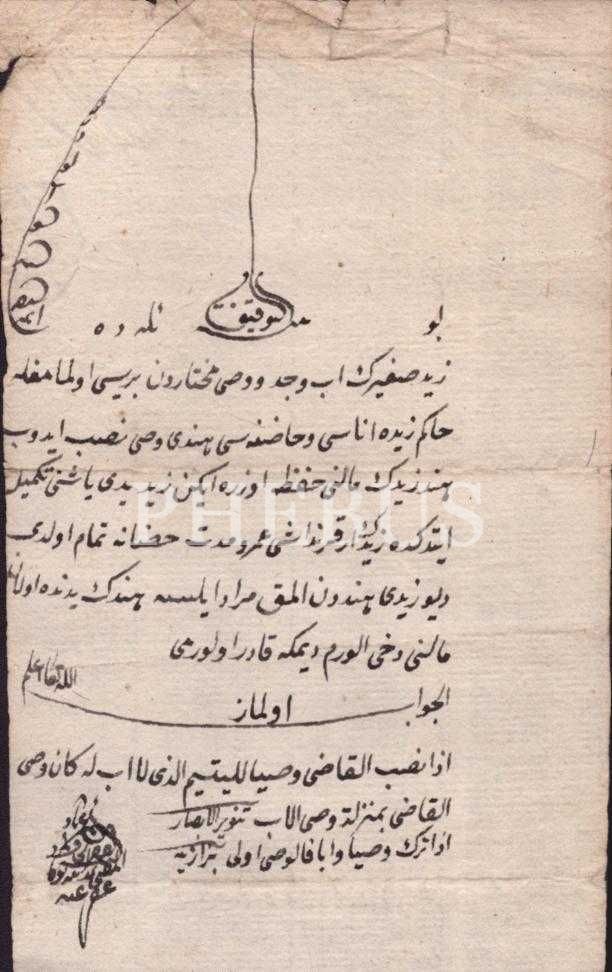 بو مسئله ده
زید صغیرك اب وجد و وصی مختاردن بریسی اولمامغله
حاکم زیده اناسی و حاضنه سی هندی وصی نصب ایدوب
هند زیدك مالنی حفظ اوزره ایکن زید یدی یاشنی تکمیل
ایتدکده زیدك ار قرنداشی عمرو مدت حضانه تمام اولدی
دیو زیدی هندون المق مراد ایلسه هندك یدنده اولان
مالنی دخی الورم دیمکه قادر اولورمی
الله تعالی اعلم
الجواب
اولماز
اذا نصب القاضی وصیا للیتیم الذی لا اب له کان وصی
القاضی بمنزلة وصی الاب تنویر الابصار
اذا ترك وصیا وابا فالوصی اولی بزازیه
PHEBUS